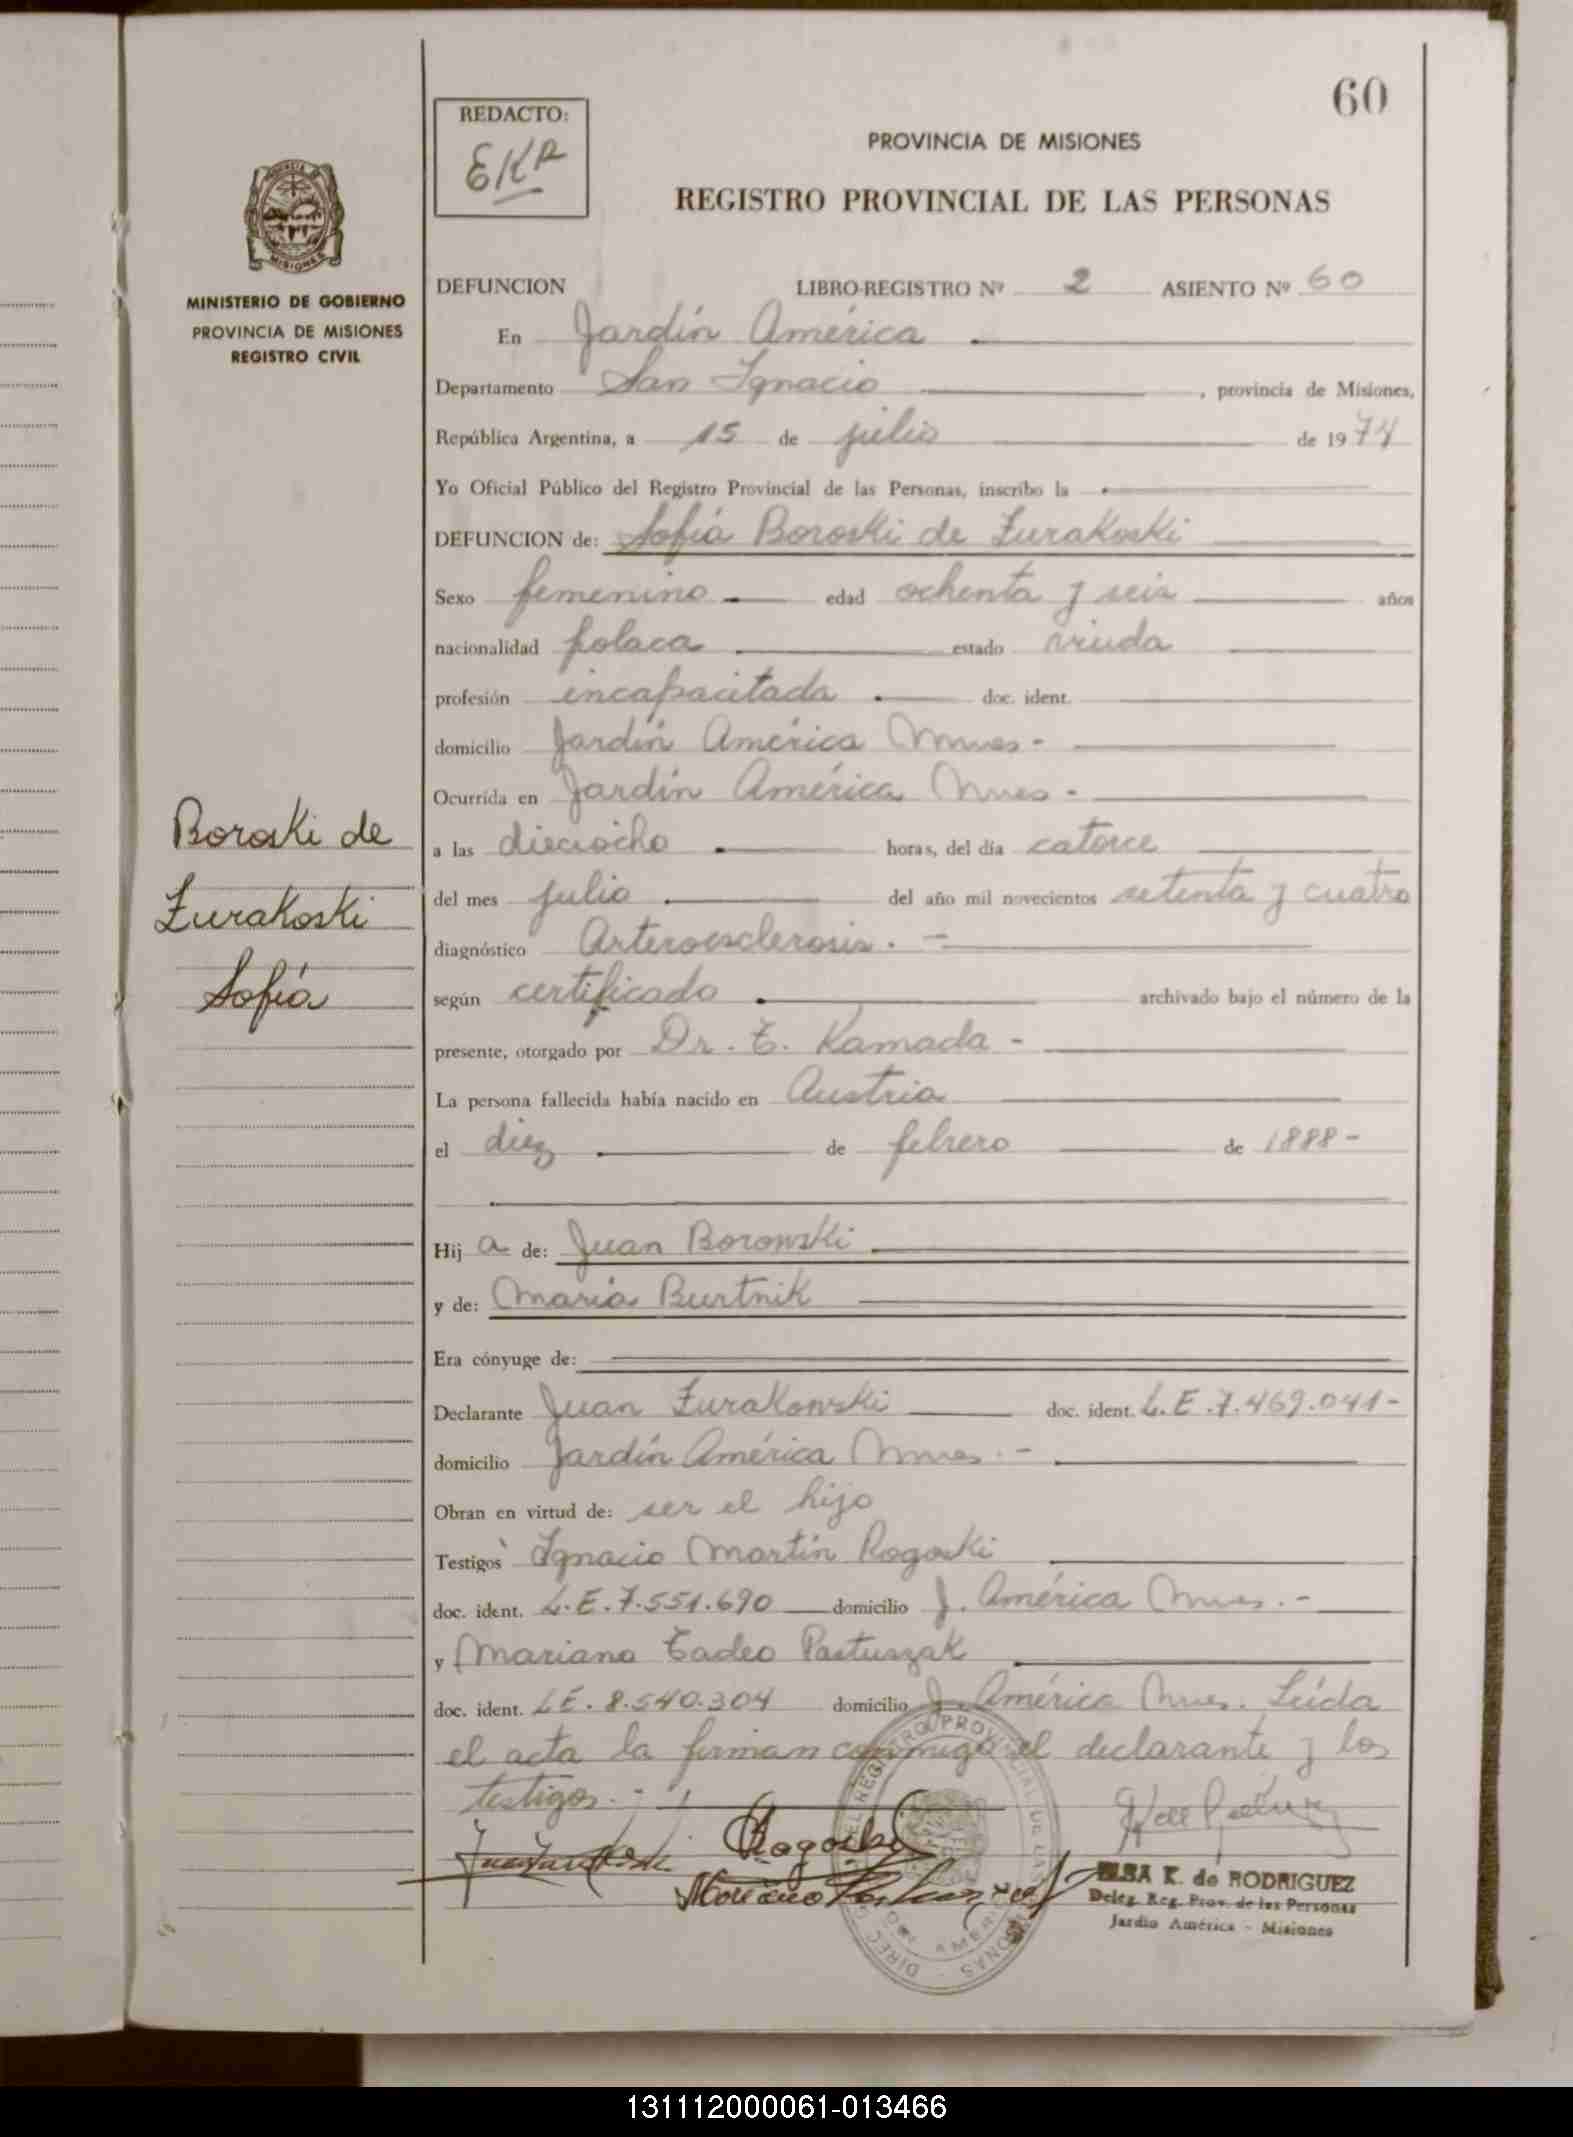 60
REDACTO:
EKR
PROVINCIA DE MISIONES
REGISTRO PROVINCIAL DE LAS PERSONAS
PROVINCIA DE MISIONES
MINISTERIO DE GOBIERNO
PROVINCIA DE MISIONES
REGISTRO CIVIL
DEFUNCION LIBRO-REGISTRO Nº 2 ASIENTO Nº 60
En Jardín América
Departamento San Ignacio , provincia de Misiones,
República Argentina, a 15 de julio de 1974
Yo Oficial Público del Registro Provincial de las Personas, inscribo la
DEFUNCION de: Sofía Boroski de Zurakoski
Sexo femenino edad ochenta y seis años
nacionalidad polaca estado viuda
profesión incapacitada doc. ident.
domicilio Jardín América Mnes -
Ocurrida en Jardín América Mnes -
Boroski de
Zurakoski
Sofía
a las dieciocho horas, del día catorce
del mes julio del año mil novecientos setenta y cuatro
diagnóstico Arteroesclerosis. -
según certificado archivado bajo el número de la
presente, otorgado por Dr. T. Kamada -
La persona fallecida había nacido en Austria
el diez de febrero de 1888 -
Hij a de: Juan Borowski
y de: María Burtnik
Era cónyuge de:
Declarante Juan Zurakowski doc. ident. L.E.7.469.041-
domicilio Jardín América Mnes. -
Obran en virtud de: ser el hijo
Testigos Ignacio Martín Rogoski
doc. ident. L.E.7.551.690 domicilio J. América Mnes. -
y Mariano Tadeo Pastuszak
doc. ident. L.E. 8.540.304 domicilio J. América Mnes. Leída
el acta la firman conmigo el declarante y los
testigos. -
Rogoski
ELSA K. de RODRIGUEZ
Deleg. Reg. Prov. de las Personas
Jardín América - Misiones
131112000061-013466